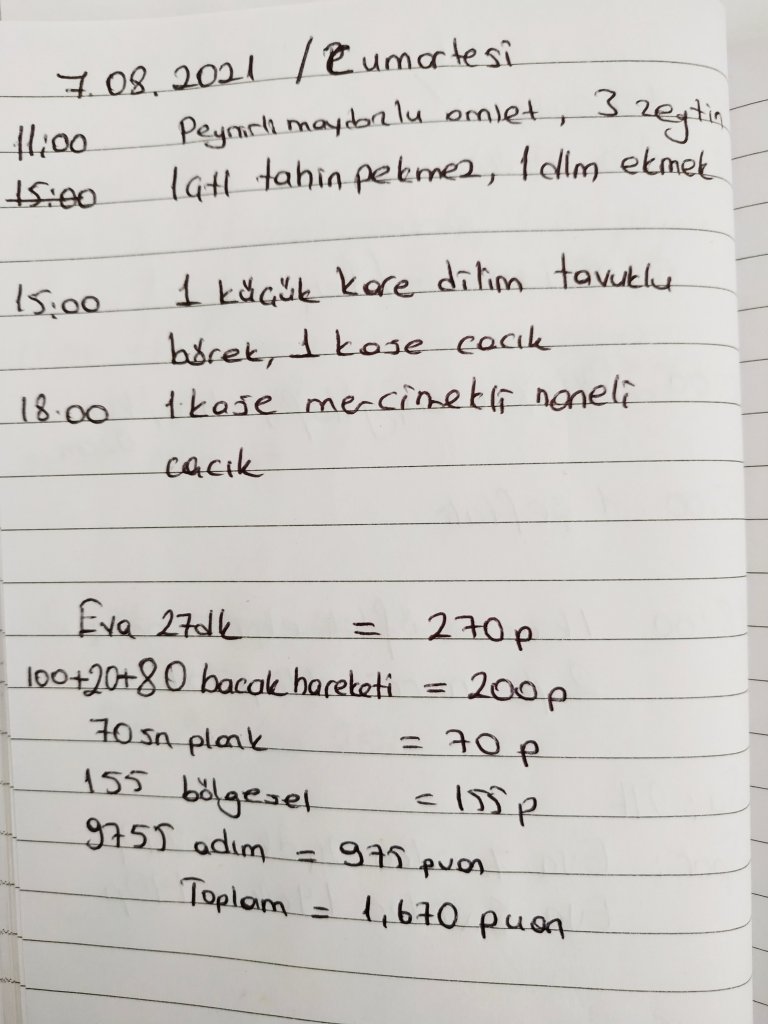 7.08.2021 / Cumartesi
11:00 Peynirli maydonzlu omlet, 3 zeytin
15:00 1 çtl tahin pekmez, 1 dlm ekmek
15:00 1 küçük kare dilim tavuklu
börek, 1 kase cacık
18:00 1 kase mercimekli naneli
cacık
Eva 27dk = 270 p
100+20+80 bacak hareketi = 200 p
70 sn plank = 70 p
155 bölgesel = 155 p
9755 adım = 975 puan
Toplam = 1,670 puan